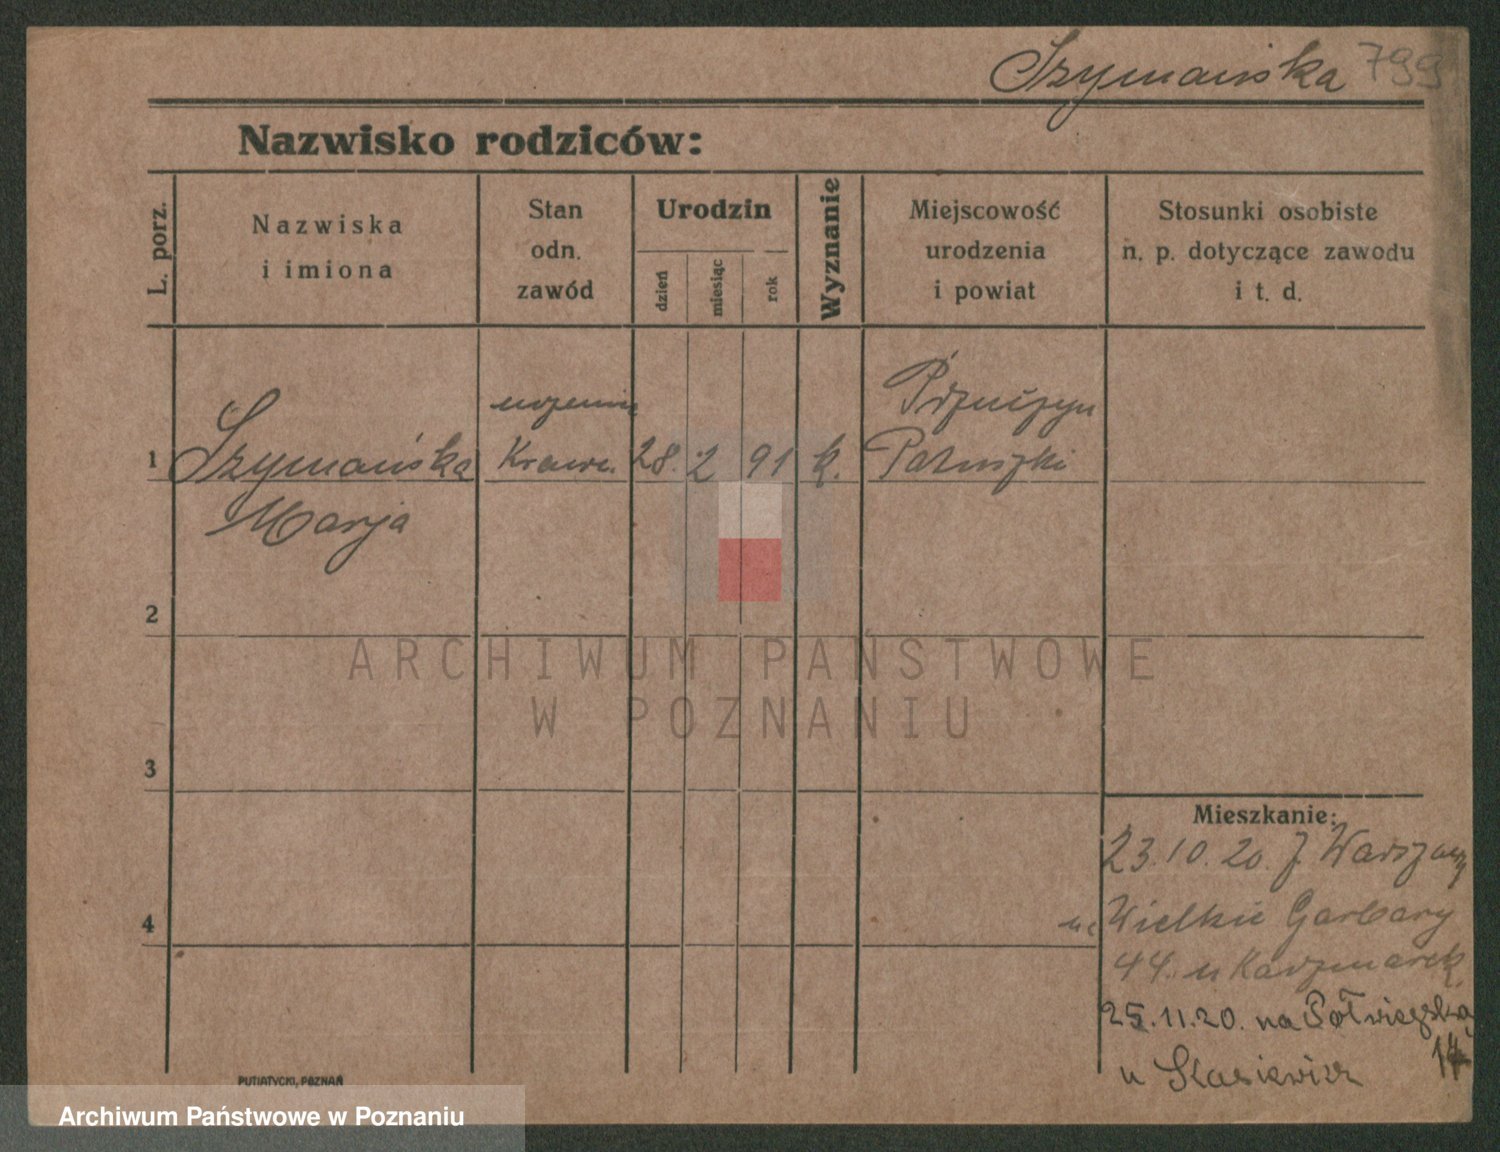 Szymańska 799
Nazwisko rodziców:
L. porz.
Nazwiska
i imiona
Stan
odn.
zawód
Urodzin
dzień
miesiąc
rok
Wyznanie
Miejscowość
urodzenia
i powiat
Stosunki osobiste
n. p. dotyczące zawodu
i t. d.
1 Szymańska Kraw. 28. 2 91 k.
Marja
2
3
4
Mieszkanie:
23.10.20. z Warszawy
na Wielkie Garbary
44. u Kaczmarek
25.11.20. na Półwiejską
14
u
PUTIATYCKI, POZNAŃ
ARCHIWUM PAŃSTWOWE
W POZNANIU
Archiwum Państwowe w Poznaniu